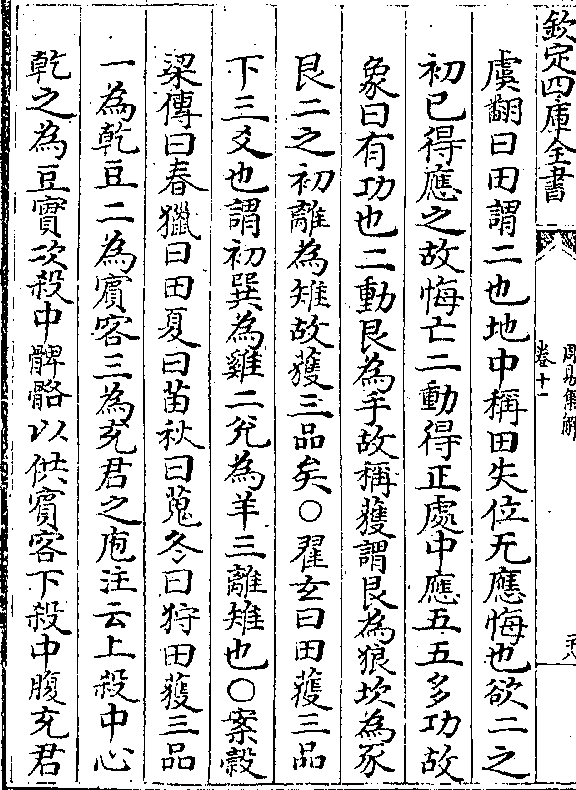 欽定四庫全書
周易集解
卷十一
虞翻曰田謂二也地中稱田失位无應悔也欲二之
初已得應之故悔亡二動得正處中應五五多功故
象曰有功也二動艮為手故稱獲謂艮為狼坎為豕
艮二之初離為雉故獲三品矣○翟玄曰田獲三品
下三爻也謂初巽為雞二兊為羊三離雉也○案糓
梁傳曰春獵曰田夏曰苗秋曰蒐冬曰狩田獲三品
一為乾豆二為賔客三為充君之庖注云上殺中心
乾之為豆實次殺中髀骼以供賔客下殺中腹充君